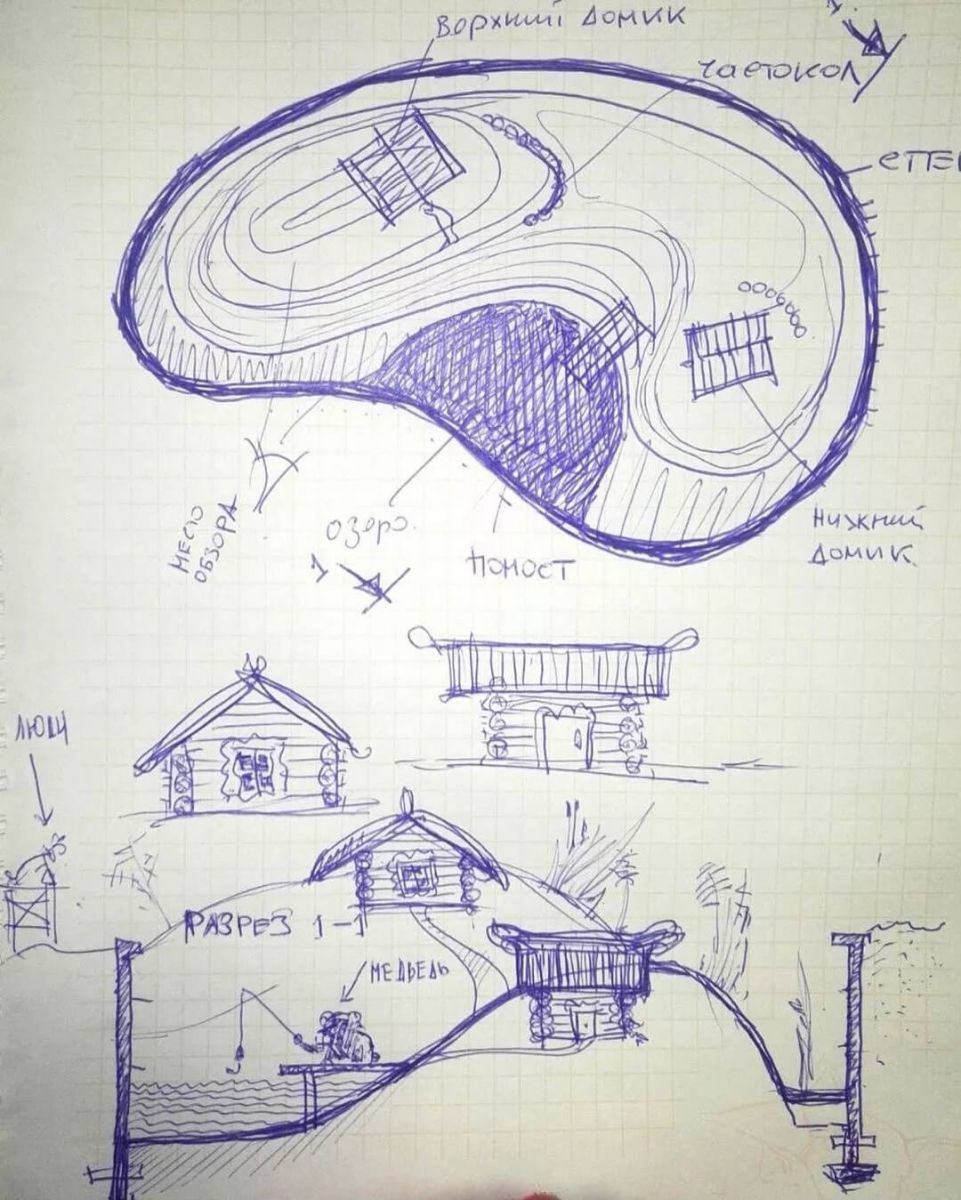 ВЕРХНИЙ ДОМИК
ЧАСТОКОЛ
МЕСТО
ОБЗОРА
ОЗЕРО
1
ПОМОСТ
НИЖНИЙ
ДОМИК
ЛЮДИ
РАЗРЕЗ 1-1
МЕДВЕДЬ